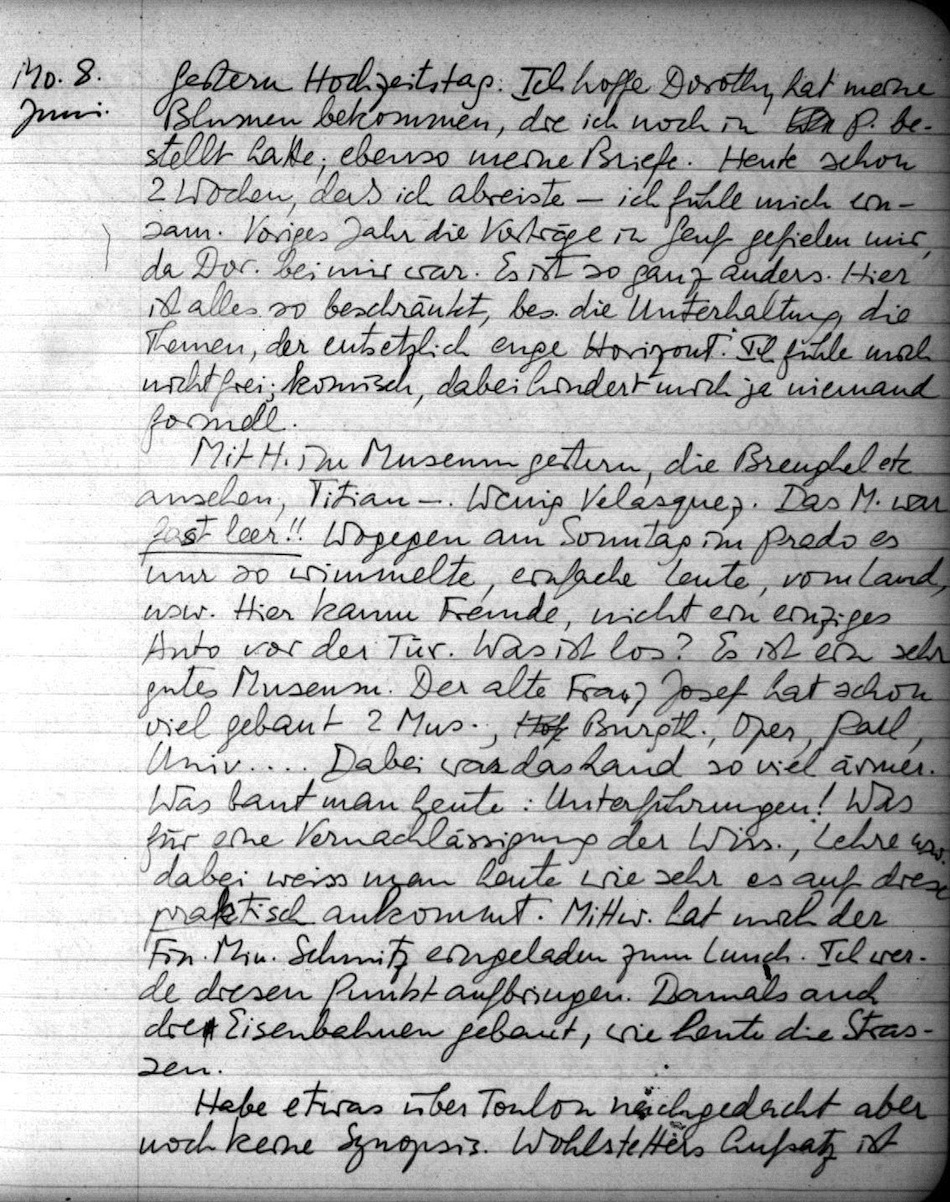 Mo. 8. Gestern Hochzeitstag. Ich hoffe Dorothy hat meine
Juni. Blumen bekommen, die ich noch in P. be-
stellt hatte; ebenso meine Briefe. Heute schon
2 Wochen, dass ich abreiste — ich fühle mich ein-
sam. Voriges Jahr die Vorträge in Genf gefielen mir,
da Dor. bei mir war. Es ist so ganz anders. Hier
ist alles so beschränkt, bes. die Unterhaltung, die
Themen, der entsetzlich enge Horizont. Ich fühle mich
nicht frei; komisch, dabei hindert mich ja niemand
formell.
Mit H. im Museum gestern, die Breughel etc
ansehen, Titian —. Wenig Velasquez. Das M. war
fast leer!! Wogegen am Sonntag im Prado es
nur so wimmelte, einfache Leute, vom Land,
usw. Hier kaum Fremde, nicht ein einziges
Auto vor der Tür. Was ist los? Es ist ein sehr
gutes Museum. Der alte Franz Josef hat schon
viel gebaut 2 Mus., Burgth., Oper, Parl,
Univ.... Dabei war das Land so viel ärmer.
Was baut man heute: Unterführungen! Was
für eine Vernachlässigung der Wiss., Lehre usw.
dabei weiss man heute wie sehr es auf diese
praktisch ankommt. Mittw. hat mich der
Fin. Min. Schmitz eingeladen zum Lunch. Ich wer-
de diesen Punkt aufbringen. Damals auch
die Eisenbahnen gebaut, wie heute die Stras-
sen.
Habe etwas über Toulon nachgedacht aber
noch keine Synopsis. Wohlstetters Aufsatz ist